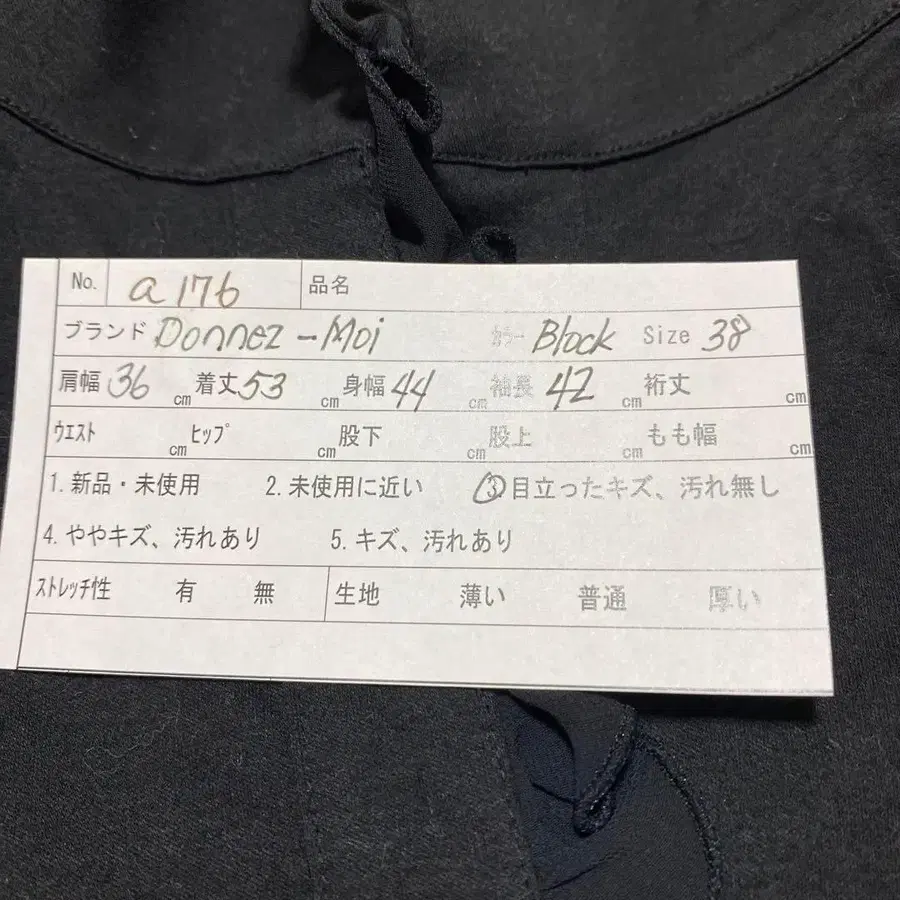 No. a 176 品名
ブランド Donnez-Moi カラー Block Size 38
肩幅 36 cm 着丈 53 cm 身幅 44 cm 袖長 42 cm 裄丈 cm
ウエスト cm ヒップ cm 股下 cm 股上 cm もも幅 cm
1. 新品・未使用 2. 未使用に近い ③目立ったキズ、汚れ無し
4. ややキズ、汚れあり 5. キズ、汚れあり
ストレッチ性 有 無 生地 薄い 普通 厚い